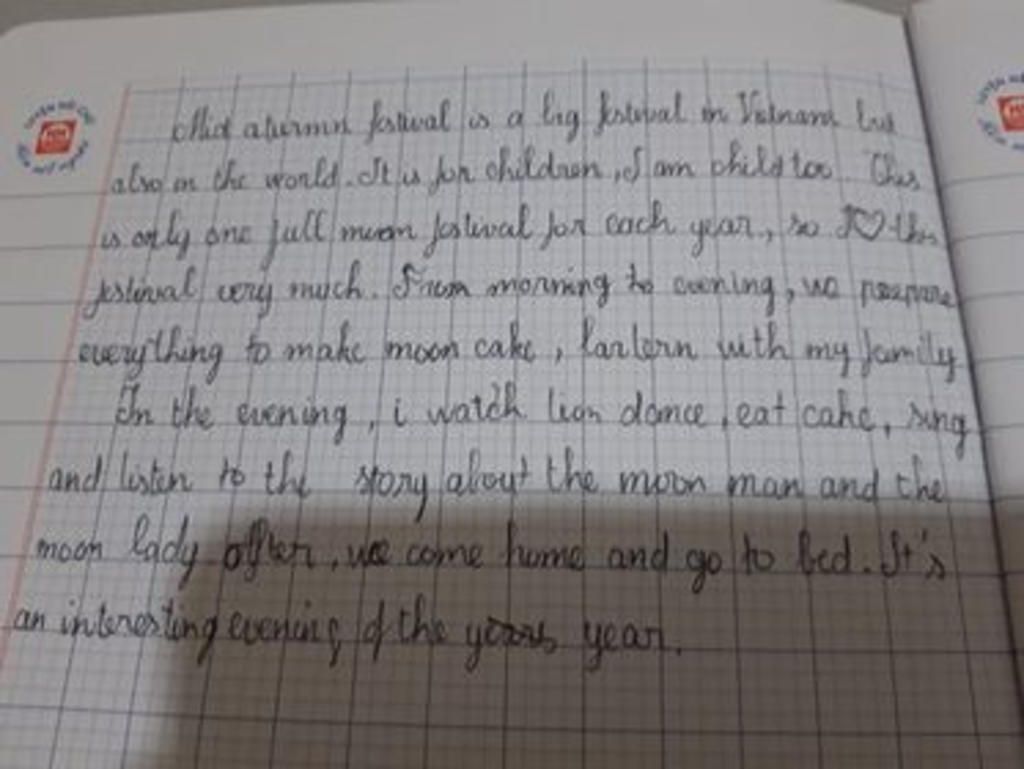 Mid aturmn festival is a big festival in Vietnam but
also in the world. It is for children, I am child too. This
is only one full moon festival for each year, so I ♡ this
festival very much. From morning to evening, we prepare
everything to make moon cake, lartern with my family
In the evening, i watch lion dance, eat cake, sing
and listen to the story about the moon man and the
moon lady after, we come home and go to bed. It's
an interesting evening of the years year.